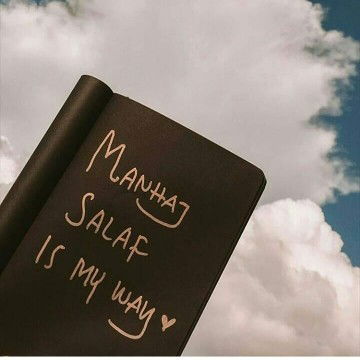 MANHAJ
SALAF
IS MY WAY ♥